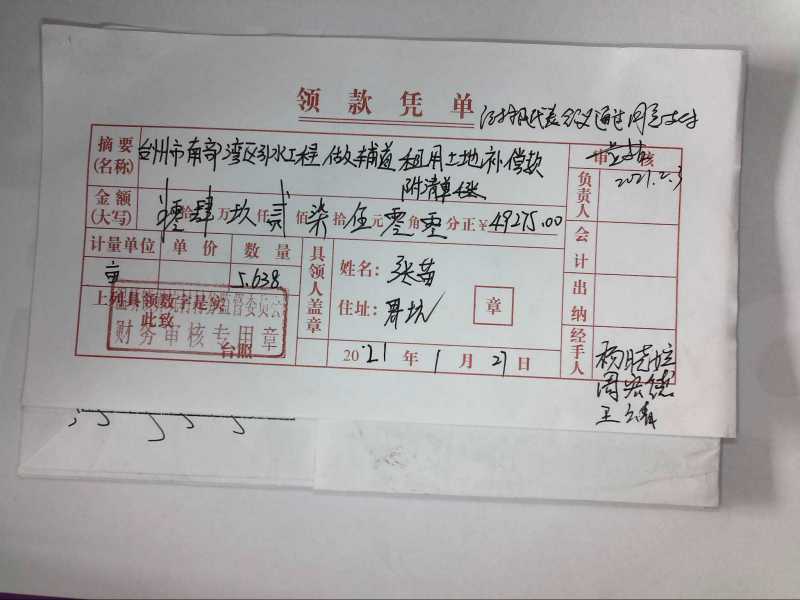 领款凭单
代表会议通过同意支付
2021.2.3
摘要(名称) 台州市南部湾区引水工程 做辅道 租用土地补偿款
附清单
金额(大写) 零拾肆万玖仟贰佰柒拾伍元零角零分正¥49275.00
计量单位 单价 数量
亩 5.638
上列具领数字是实
此致
台照
监督委员会
财务审核专用章
具领人盖章
姓名:张苗
住址:
章
2021年1月27日
审核
负责人
会计
出纳
经手人